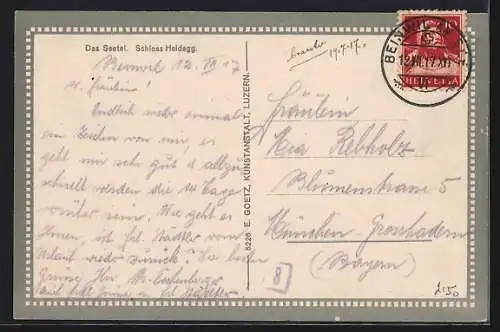 Das Seetal. Schloss Heidegg.
Beinwil 12. VII 17
Fräulein!
Endlich wieder einmal
ein Zeichen von mir, es
geht mir sehr gut &
schnell werden die 14 Tage
vorüber sein. Wie geht es
Ihnen, ist Frl. Städtler vom
Urlaub wieder zurück? Die besten
Grüsse Ihr
auch Grüsse an Frl.
5226 E. GOETZ, KUNSTANSTALT, LUZERN.
19.7.17.
BEINWIL
12.VII.17.XII
10
HELVETIA
Fräulein
Mia Rebholz
Blumenstrasse 5
München-Grosshadern
(Bayern)
8
2.50